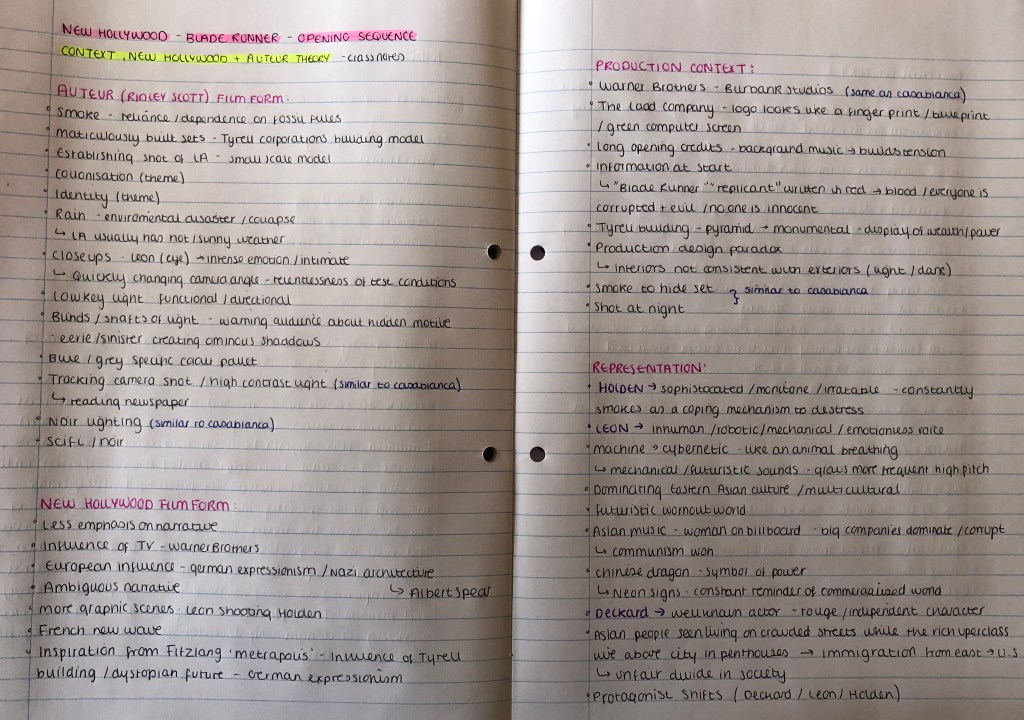 NEW HOLLYWOOD - BLADE RUNNER - OPENING SEQUENCE
CONTEXT, NEW HOLLYWOOD + AUTEUR THEORY - class notes
AUTEUR (RIDLEY SCOTT) FILM FORM:
• Smoke - reliance / dependence on fossil fules
• maticulously built sets - Tyrell corporations building model
• Establishing shot of LA - small scale model
• colionisation (theme)
• Identity (theme)
• Rain - enviromental disaster / collapse
↳ LA usually has hot / sunny weather
• closeups - Leon (eye) → intense emotion / intimate
↳ Quickly changing camera angle - relentlessness of test conditions
• Low key light - functional / directional
• Blinds / shafts of light - warning audience about hidden motive
- eerie / sinister creating ominous shaddows
• Blue / grey specific colour pallet
• Tracking camera shot / high contrast light (similar to casablanca)
↳ reading newspaper
• Noir lighting (similar to casablanca)
• scifi / noir
NEW HOLLYWOOD FILM FORM:
• Less emphasis on narrative
• Influence of TV - Warner Brothers
• European influence - german expressionism / Nazi architecture
• Ambiguous narrative ↳ Albert Spear
• more graphic scenes - Leon shooting Holden
• French new wave
• Inspiration from Fitzlang 'metrapolis' - Influence of Tyrell
building / dystopian future - German expressionism
PRODUCTION CONTEXT:
• Warner Brothers - Burbank studios (same as casablanca)
• The Ladd company - logo looks like a finger print / blueprint
/ green computer screen
• Long opening credits - background music → builds tension
• information at start
↳ "Blade Runner" "replicant" written in red → blood / everyone is
corrupted + evil / no one is innocent
• Tyrell building - pyramid → monumental - display of wealth / power
• Production design paradox
↳ interiors not consistent with exteriors (light / dark)
• Smoke to hide set } similar to casablanca
• Shot at night
REPRESENTATION:
• HOLDEN → sophistocated / monitone / irratable - constantly
smokes as a coping mechanism to destress
• LEON → inhuman / robotic / mechanical / emotionless voice
• machine → cybernetic - like an animal breathing
↳ mechanical / futuristic sounds - grows more frequent high pitch
• Dominating Eastern Asian culture / multicultural
• futuristic wornout world
• Asian music - woman on billboard - big companies dominate / corrupt
↳ communism won
• chinese dragon - symbol of power
↳ Neon signs - constant reminder of commercialised world
• DECKARD → well known actor - rouge / independent character
• Asian people seen living on crowded streets while the rich uperclass
live above city in penthouses → immigration from east → U.S
↳ unfair divide in society
• Protagonist shifts (Deckard / Leon / Holden)